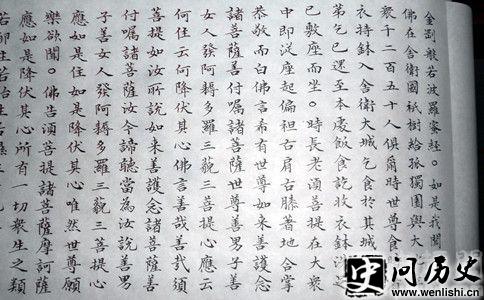 金剛般若波羅蜜經。如是我聞
佛在舍衛國祇樹給孤獨園與大
衆千二百五十人俱爾時世尊食
衣持鉢入舍衛大城乞食於其城
第乞已還至本處飯食訖收衣鉢洗
已敷座而坐。時長老須菩提在大衆
中即從座起偏袒右肩右膝著地合掌
恭敬而白佛言希有世尊如來善護念
諸菩薩善付囑諸菩薩世尊善男子善
女人發阿耨多羅三藐三菩提心應云
何住云何降伏其心佛言善哉善哉須
菩提如汝所說如來善護念諸菩薩善
付囑諸菩薩汝今諦聽當為汝說善男
子善女人發阿耨多羅三藐三菩提心
應如是住如是降伏其心唯然世尊願
樂欲聞。佛告須菩提諸菩薩摩訶薩
應如是降伏其心所有一切衆生之類
若卵生若胎生若
史问历史
www.wenlishi.cn